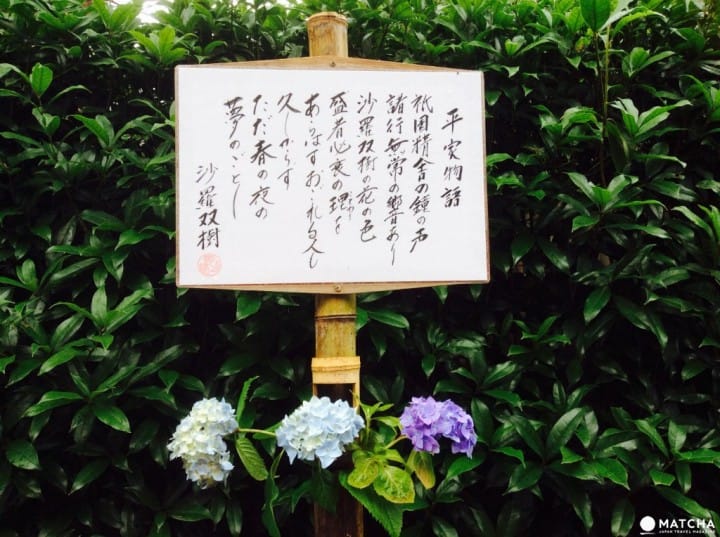 平家物語
祇園精舎の鐘の声
諸行無常の響あり
沙羅双樹の花の色
盛者必衰の理を
あらはすおごれる人も
久しからず
ただ春の夜の
夢のごとし
沙羅双樹
MATCHA
JAPAN TRAVEL MAGAZINE